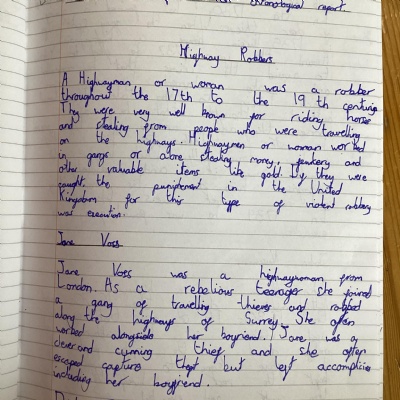 chronological report.
Highway Robbers
A Highwayman or woman was a robber
throughout the 17th to the 19th centurie
They were very well known for riding horse
and stealing from people who were travelling
on the highways. Highwaymen or woman worked
in gangs or alone stealing money, jewlery and
other valuable items like gold. If they were
caught the punishment in the United
Kingdom for this type of violent robbery
was execution.
Jane Voss
Jane Voss was a highwaywoman from
London. As a rebelious teenager she joined
a gang of travelling thieves and robbed
along the highways of Surrey. She often
worked alongside her boyfriend. Jane was a
clever and cunning thief and she often
escaped capture but left accomplices
including her boyfriend.